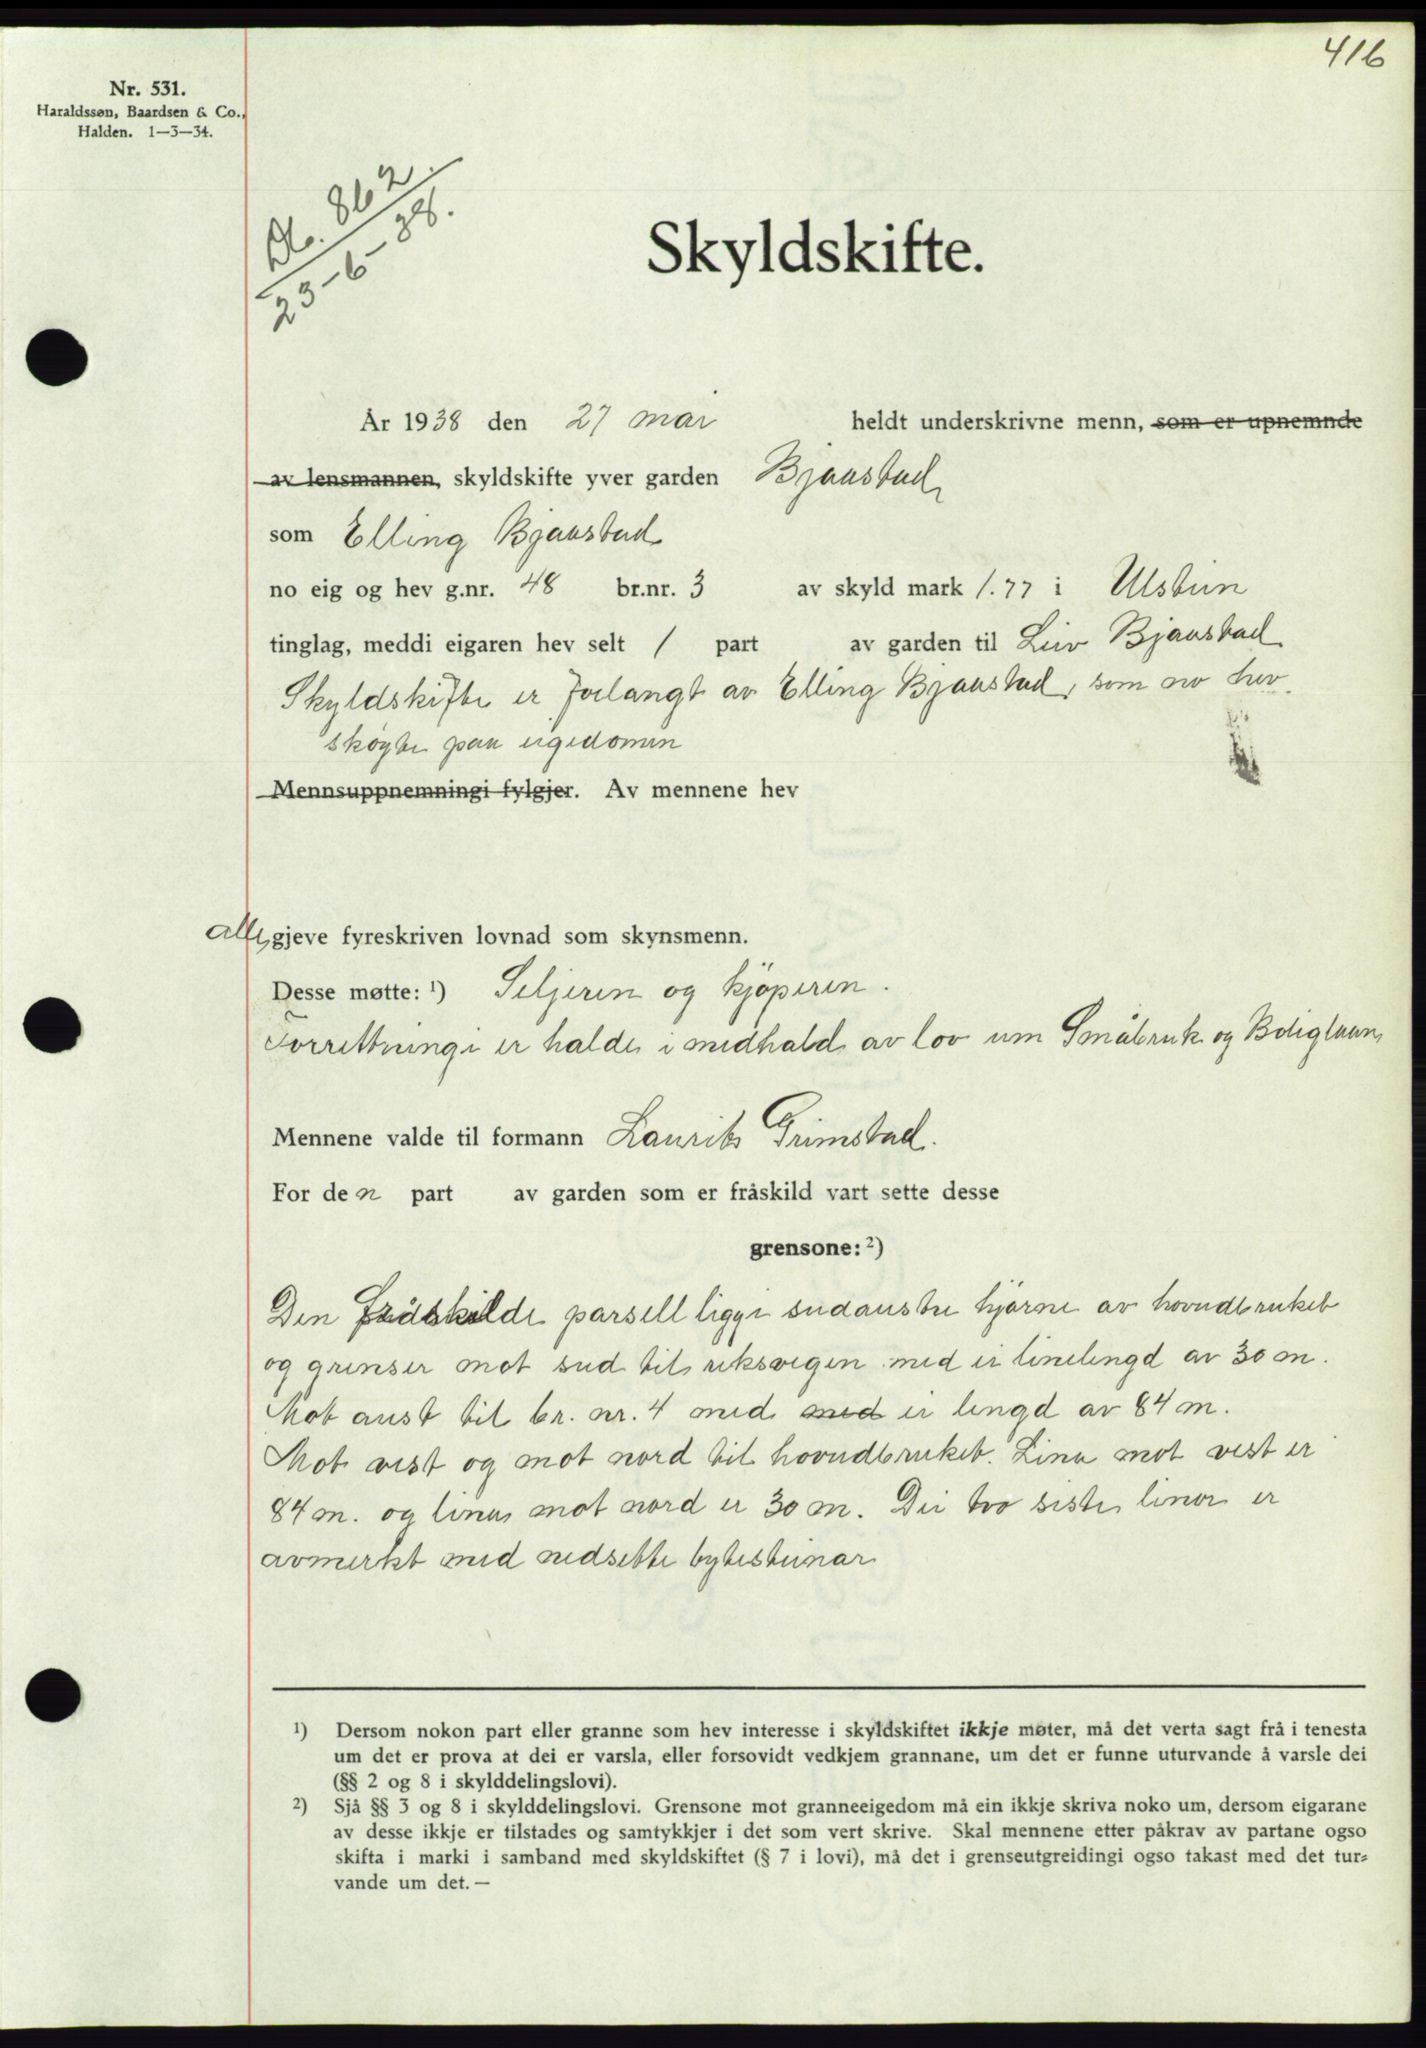 416
Nr. 531.
Haraldssøn, Baardsen & Co.,
Halden. 1—3—34.
Db. 862.
23-6-38.
Skyldskifte.
År 1938 den 27 mai heldt underskrivne menn, som er upnemnde
av lensmannen, skyldskifte yver garden Bjaastad
som Elling Bjaastad
no eig og hev g.nr. 48 br.nr. 3 av skyld mark 1.77 i Ulstein
tinglag, meddi eigaren hev selt 1 part av garden til Leiv Bjaastad
Skyldskifte er forlangt av Elling Bjaastad, som no hev
skøyte paa eigedomen
Mennsuppnemningi fylgjer. Av mennene hev
alle gjeve fyreskriven lovnad som skynsmenn.
Desse møtte: ¹) Seljeren og kjöperen.
Forrettningi er halde i medhald av lov um Småbruk og Boliglaan
Mennene valde til formann Laurits Grimstad.
For den part av garden som er fråskild vart sette desse
grensone: ²)
Den fråskilde parsell ligge i sudaustre hjørne av hovudbruket
og grenser mot sud til riksvegen med ei linelengd av 30 m.
Mot aust til br. nr. 4 med med ei lengd av 84 m.
Mot vest og mot nord til hovudbruket. Lina mot vest er
84 m. og lina mot nord er 30 m. Dei two siste linor er
avmerkt med nedsette bytesteinar
¹) Dersom nokon part eller granne som hev interesse i skyldskiftet ikkje møter, må det verta sagt frå i tenesta
um det er prova at dei er varsla, eller forsovidt vedkjem grannane, um det er funne uturvande å varsle dei
(§§ 2 og 8 i skylddelingslovi).
²) Sjå §§ 3 og 8 i skylddelingslovi. Grensone mot granneeigedom må ein ikkje skriva noko um, dersom eigarane
av desse ikkje er tilstades og samtykkjer i det som vert skrive. Skal mennene etter påkrav av partane ogso
skifta i marki i samband med skyldskiftet (§ 7 i lovi), må det i grenseutgreidingi ogso takast med det tur-
vande um det. —